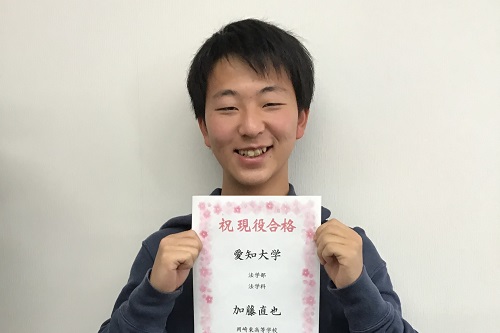 祝 現役合格
愛知大学
法学部
法学科
加藤直也
岡崎東高等学校